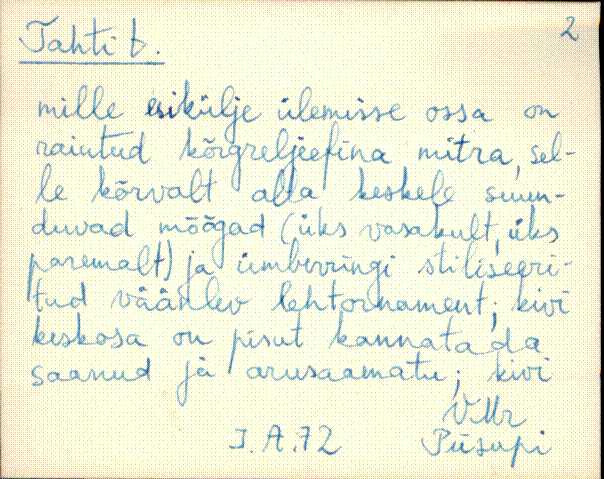 Tahti t.
2
mille esikülje ülemisse ossa on
raiutud kõrgreljeefina mitra, sel-
le kõrvalt alla keskele suun-
duvad mõõgad (üks vasakult, üks
paremalt) ja ümberringi stiliseeri-
tud väänlev lehtornament; kivi
keskosa on pisut kannatada
saanud ja arusaamatu; kivi
VMr
I.A.72 Piisupi